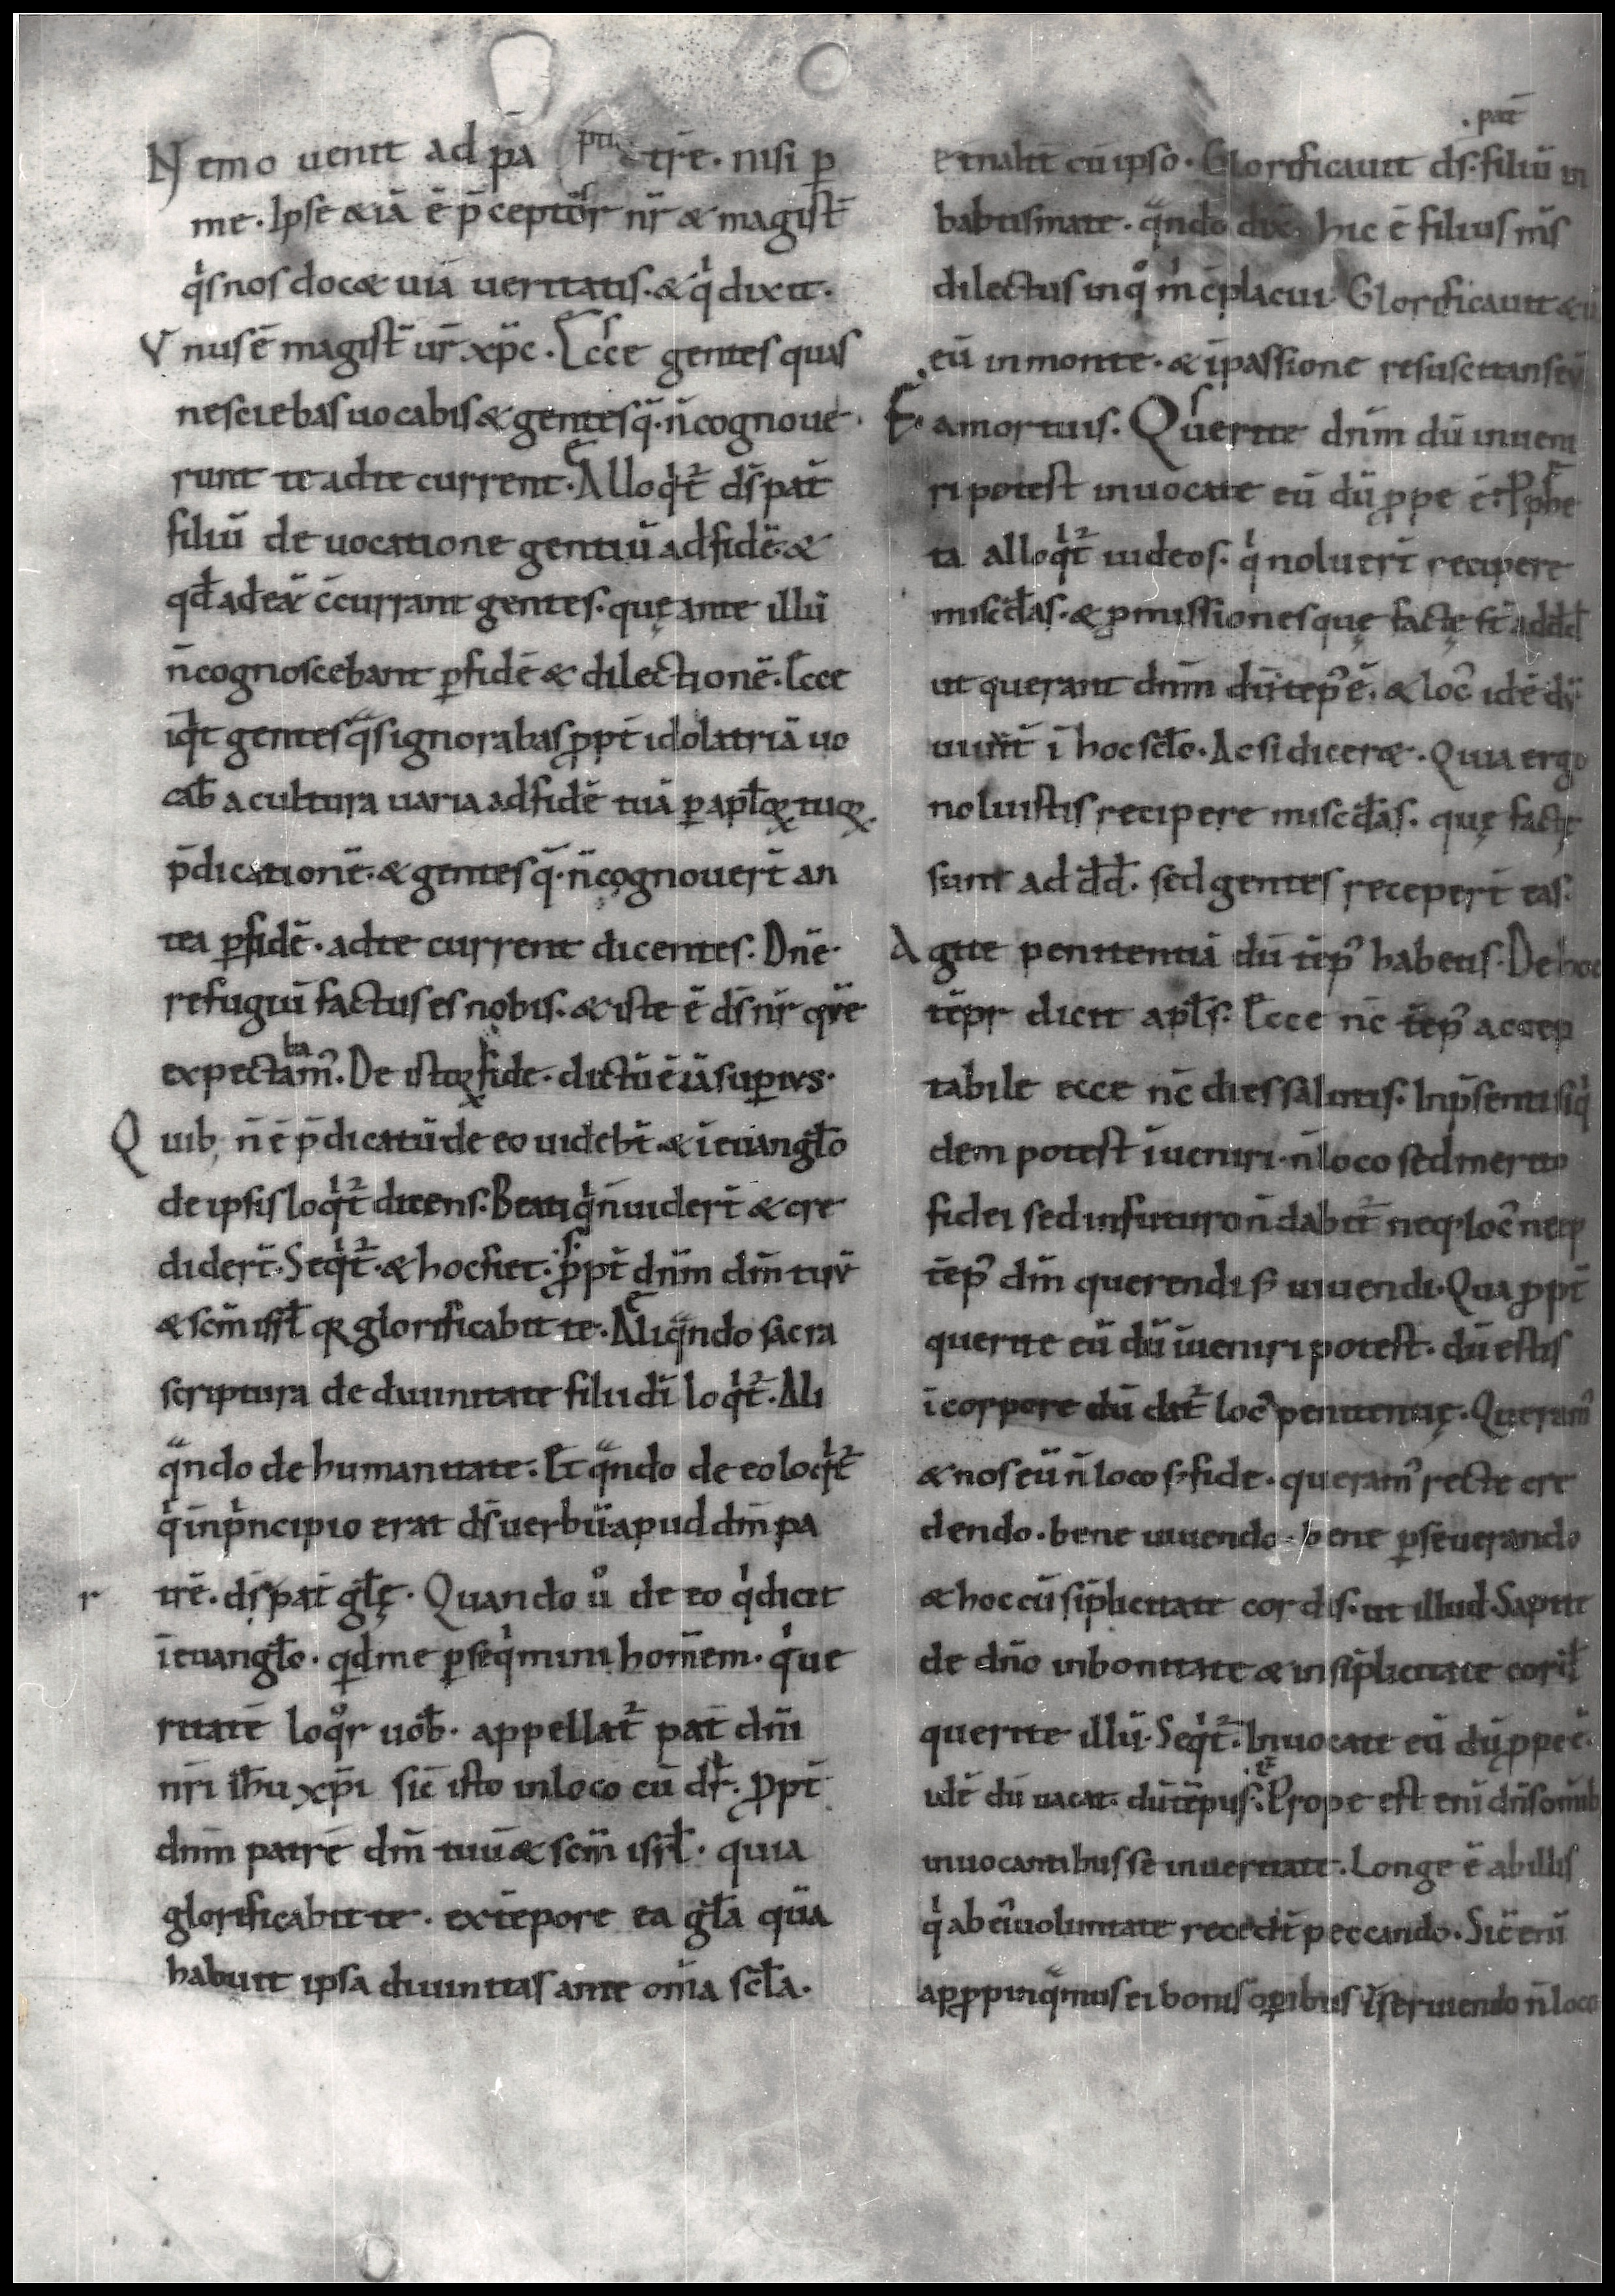 Nemo uenit ad pā trē. nisi ꝑ
me. Ipse & iā ē p̄ceptor nr̄ & magist̄
q̇s nos docæ uiā ueritatis. & q̇ dixit.
Vnus ē magist̄ ur̄ xp̄c. Ecce gentes quas
nesciebas uocabis & gentes q̄. n̄ cognoue
runt te adte current. Alloq̇t̄ ds̄ pat̄
filiū de uocatione gentiū adfidē. &
qd̄ adeā c̄currant gentes. quę ante illū
n̄ cognoscebant ꝑfidē & dilectionē. Ecce
iq̄t gentes q̄s ignorabas ꝓpt̄ idolatriā uo
cab̄ a cultura uaria adfidē tuā ꝑ apl̄oꝝ tuoꝝ
p̄dicationē. & gentes q̄. n̄ cognouer̄t an
tea ꝑfidē. adte current dicentes. Dn̄e
refugiū factus es nobis. & iste ē ds̄ nr̄ quē
expectabam᾽. De istoꝝ fide. dictū ē iā suꝑius.
Quib; n̄ ē p̄dicatū de eo uidebt̄. & ī euangl̄o
de ipsis loq̇t̄ dicens. Beati q̇ n̄ uider̄t & cre
dider̄t. Seq̇t̄. & hoc fiet. ꝓpt̄ dn̄m dm̄ tuū
& scm̄ isrl̄ qꝛ glorificabit te. Aliq̄ndo sacra
scriptura de diuinitate filii dī loq̇t̄. Ali
q̄ndo de humanitate. Et q̄ndo de eo loq̇t̄
q̇ inṗncipio erat ds̄ uerbū apud dm̄ pa
trē. ds̄ pat̄ gl̄ę. Quando ů de eo q̇ dicit
r
ī euangl̄o. qd̄ me ꝑseq̇mini hom̄em. q̇ ue
ritatē loq̊r uob̄. appellat̄ pat̄ dn̄i
nr̄i ih̄u xp̄i sic̄ isto inloco cū dr̄. ꝓpt̄
dn̄m patrē dm̄ tuū & scm̄ isrl̄. quia
glorificabit te. ex tēpore ea gl̄a quā
habuit ipsa diuinitas ante om̄a scl̄a.
. pat̄
emalit cū ipso. Glorificauit ds̄. filiū in
babtismate. q̄ndo dix̄. hic ē filius m̄s
dilectus in q̊ ṁ c̄placui. Glorificauit &
eū in monte. & ī passione resuscitans eū
E. amortuis. Querite dn̄m dū inueni
ri potest inuocate eū dū ꝓpe ē. Ꝓphe
ta alloq̇t̄ iudeos. q̇ noluer̄t recipere
misc̄das. & ꝓmissiones quę factę st̄ ad dd̄
ut querant dn̄m dū tēp᾽ ē. & loc᾽ idē dū
uiuūt ī hoc scl̄o. Ac si diceræ. Quia ergo
noluistis recipere misc̄das. quę factę
sunt ad dd̄. sed gentes receper̄t eas.
Agite penitentiā dū tēp᾽ habetis. De hoc
tēpr dicit apl̄s. Ecce nc̄ tēp᾽ accep
tabile ecce nc̄ dies salutis. Inp̄senti siq̇
dem potest īueniri. n̄ loco sed merito
fidei sed infuturo n̄ dabit̄ neq; loc᾽ neq;
tēp᾽ dm̄ querendi ꝉ uiuendi. Qua ꝓpt̄
querite eū dū īueniri potest. dū estis
ī corpore dū dat̄ loc᾽ penitentię. Queram᾽
& nos eū n̄ loco s; fide. queram᾽ recte cre
dendo. bene uiuendo. bene ꝑseuerando
& hoc cū sīplicitate cordis. ut illud. Sapite
de dn̄o inbonitate & in sīplicitate cordī
querite illū. Seq̇t̄. Inuocate eū dū ꝓpe ē.
idē dū uacat. dū tēpus ē. Prope est enī dn̄s om̄ib
inuocantibus se inueritate. Longe ē ab illis
q̇ ab ei᾽ uoluntate recedt̄ peccando. Sic̄ enī
apꝓpinq̄mus ei bonis oꝑibus ī seruiendo n̄ loco